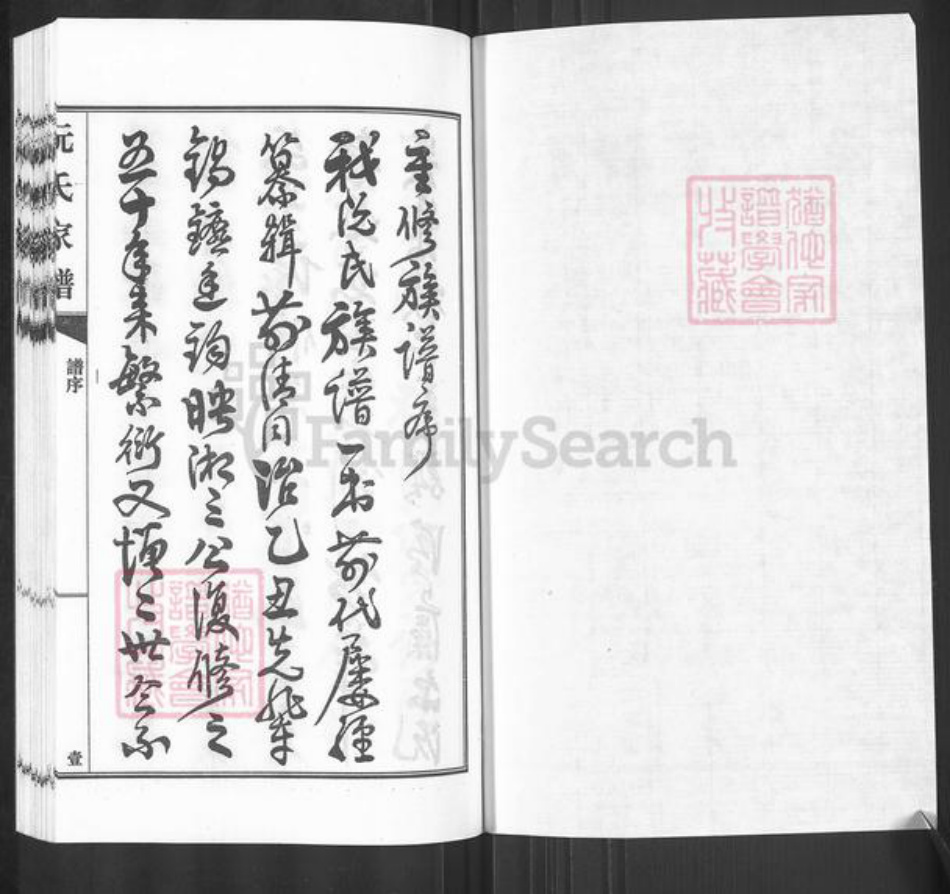 重修族譜序
我阮氏族譜一書前代屢經
纂輯前清同治乙丑先輩
錫鑣廷鈞映湘三公復修之
五十年來繁衍又增二世今不
阮氏家譜
譜序
壹
猶他家
譜學會
收藏
猶他家
譜學會
收藏
FamilySearch